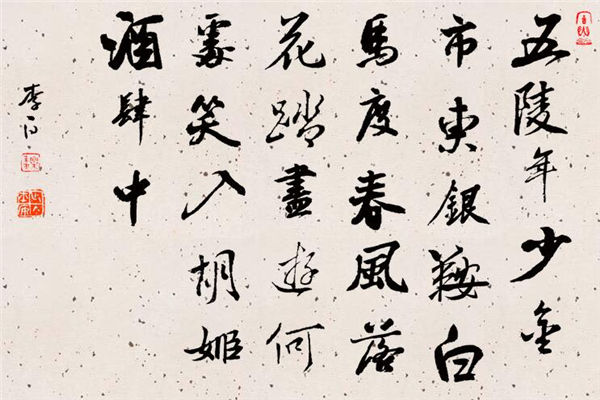 五陵年少金
市東銀鞍白
馬度春風落
花踏盡遊何
處笑入胡姬
酒肆中
李白